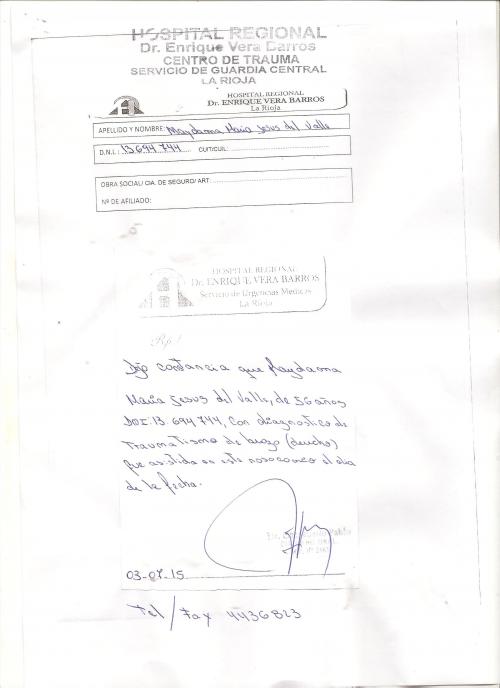 HOSPITAL REGIONAL
Dr. Enrique Vera Barros
CENTRO DE TRAUMA
SERVICIO DE GUARDIA CENTRAL
LA RIOJA
HOSPITAL REGIONAL
Dr. ENRIQUE VERA BARROS
La Rioja
APELLIDO Y NOMBRE: Maydana Maria Jesus del Valle
D.N.I.: 13.694.744 CUIT/CUIL:
OBRA SOCIAL/ CIA. DE SEGURO/ ART:
Nº DE AFILIADO:
HOSPITAL REGIONAL
Dr. ENRIQUE VERA BARROS
Servicio de Urgencias Medicas
La Rioja
Rp/
Dejo constancia que Maydana
Maria Jesus del Valle, de 56 años
DNI: 13.694.744, con diagnostico de
Traumatismo de brazo (derecho)
que asistida en este nosocomio el dia
de la fecha.
Pablo
03-07-15
Tel/Fax 4436823